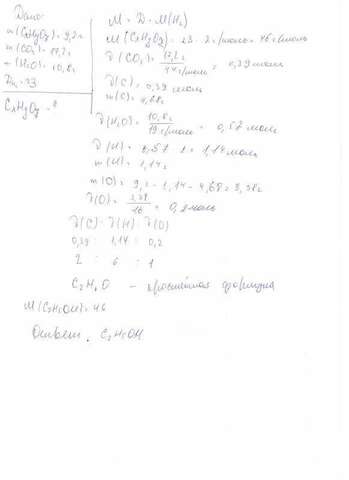 Дано:
m(CxHyOz) = 9,2г
m(CO₂) = 17,2г
m(H₂O) = 10,8г
D = 23
CxHyOz - ?
M = D · M(H₂)
M(CxHyOz) = 23 · 2 г/моль = 46 г/моль
ν(CO₂) = 17,2г / 44 г/моль = 0,39 моль
ν(C) = 0,39 моль
m(C) = 4,68г
ν(H₂O) = 10,8г / 19 г/моль = 0,57 моль
ν(H) = 0,57 · 2 = 1,14 моль
m(H) = 1,14г
m(O) = 9,2 - 1,14 - 4,68 = 3,38г
ν(O) = 3,38 / 16 = 0,2 моль
ν(C) : ν(H) : ν(O)
0,39 : 1,14 : 0,2
2 : 6 : 1
C₂H₆O - простейшая формула
M(C₂H₅OH) = 46
Ответ: C₂H₅OH